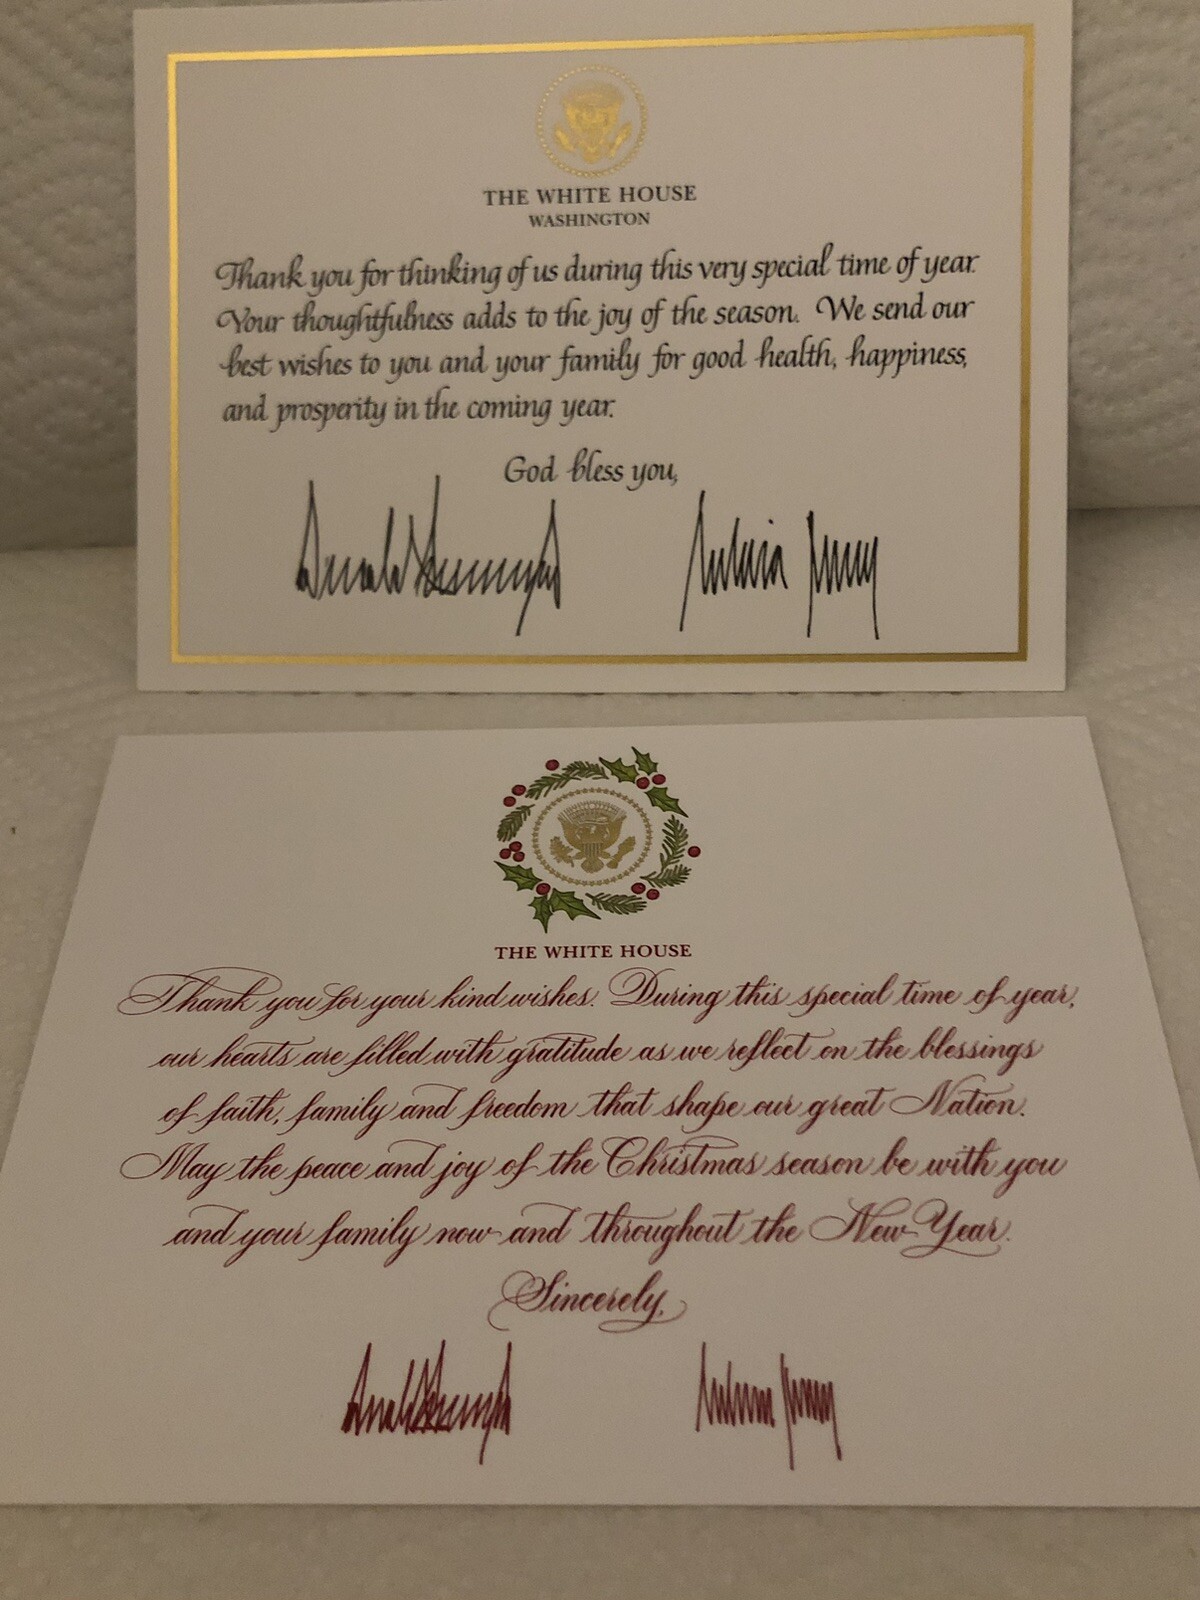 THE WHITE HOUSE
WASHINGTON
Thank you for thinking of us during this very special time of year.
Your thoughtfulness adds to the joy of the season. We send our
best wishes to you and your family for good health, happiness,
and prosperity in the coming year.
God bless you,
Donald Trump Melania Trump
THE WHITE HOUSE
Thank you for your kind wishes. During this special time of year,
our hearts are filled with gratitude as we reflect on the blessings
of faith, family and freedom that shape our great Nation.
May the peace and joy of the Christmas season be with you
and your family now and throughout the New Year.
Sincerely,
Donald Trump Melania Trump